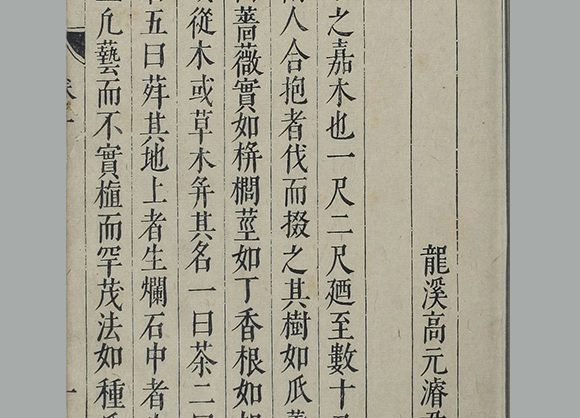 龍溪高元濬
之嘉木也一尺二尺廼至數十
人合抱者伐而掇之其樹如瓜
薔薇實如栟櫚莖如丁香根如
從木或草木并其名一曰茶二曰
五曰荈其地上者生爛石中者
凡藝而不實植而罕茂法如種
卷一